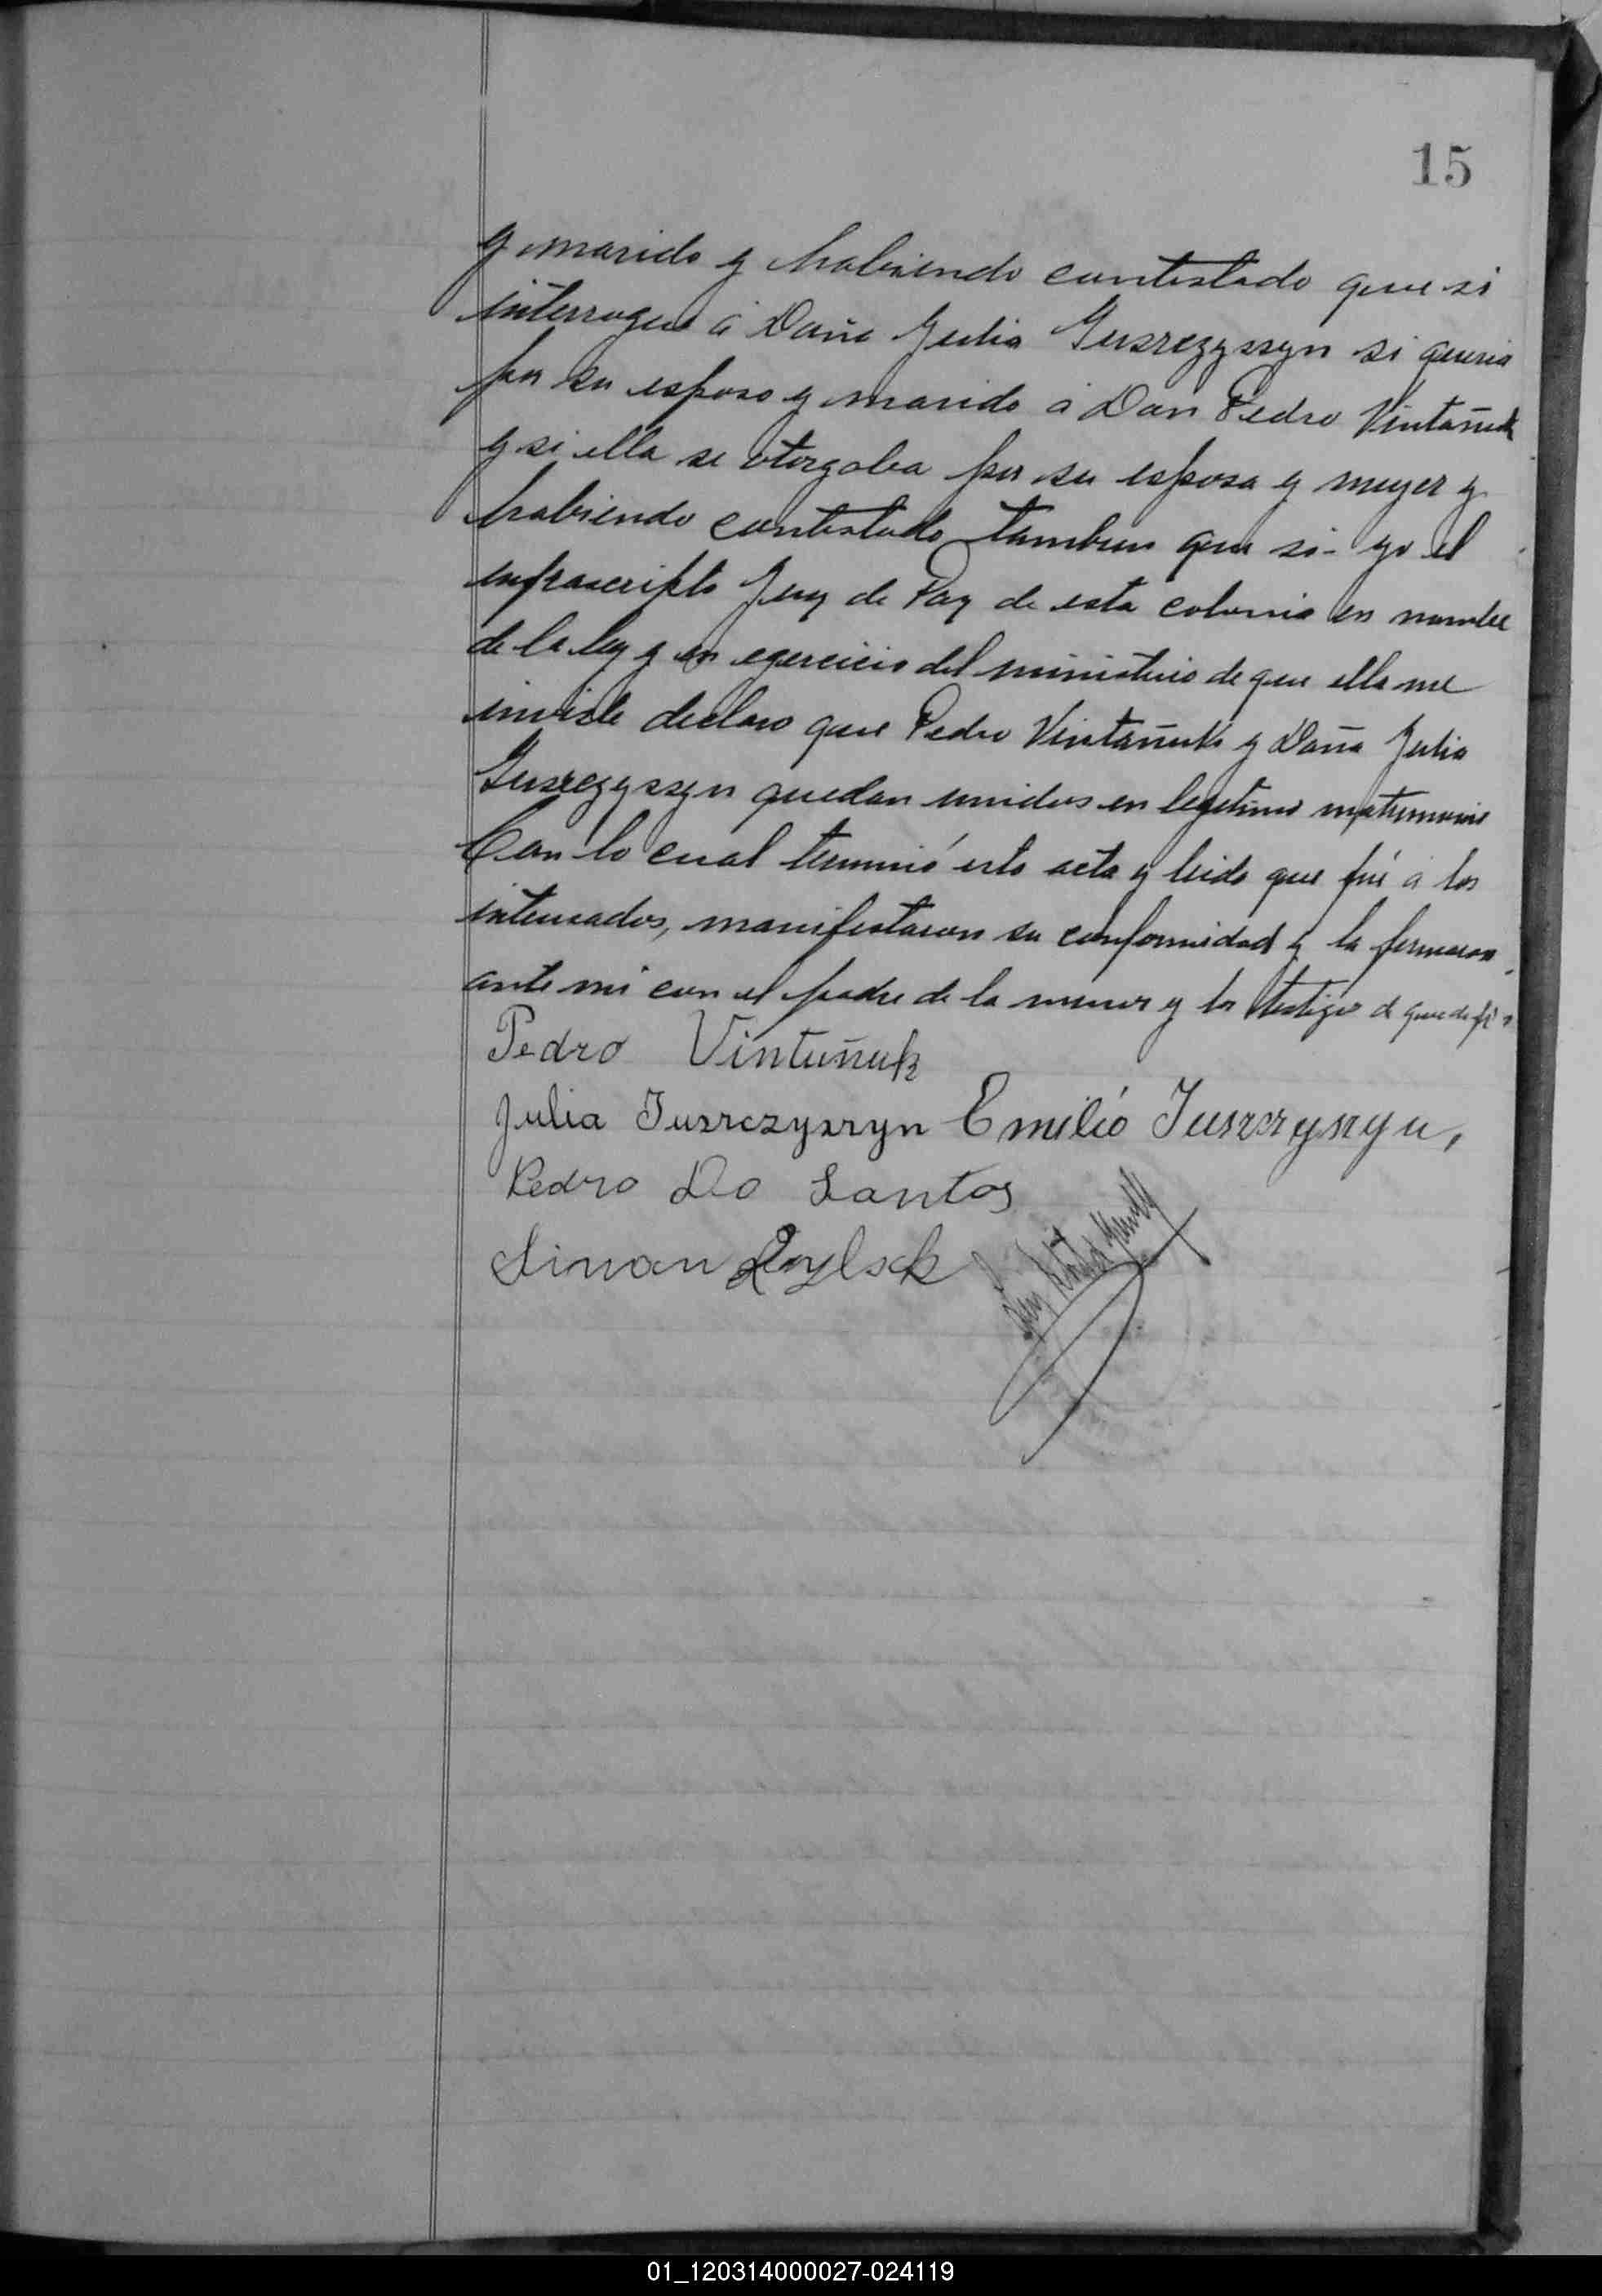 15
y marido y habiendo contestado que si
interrogué á Doña Julia Juszczyszyn si queria
por su esposo y marido á Don Pedro Vintoñuk
y si ella se otorgaba por su esposa y muger y
habiendo contestado tambien que si- yo el
infrascripto Juez de Paz de esta colonia en nombre
de la ley y en egercicio del ministerio de que ella me
inviste declaro que Pedro Vintoñuk y Doña Julia
Juszczyszyn quedan unidos en legitimo matrimonio
Con lo cual terminó esta acta y leida que fué á los
interesados, manifestaron su conformidad y la firmaron
ante mi con el padre de la menor y los testigos de que doy fé
Pedro Vintuñuk
Julia Juszczyszyn Emilió Juszczyszyn,
Pedro Do Santos
Simon
01_120314000027-024119